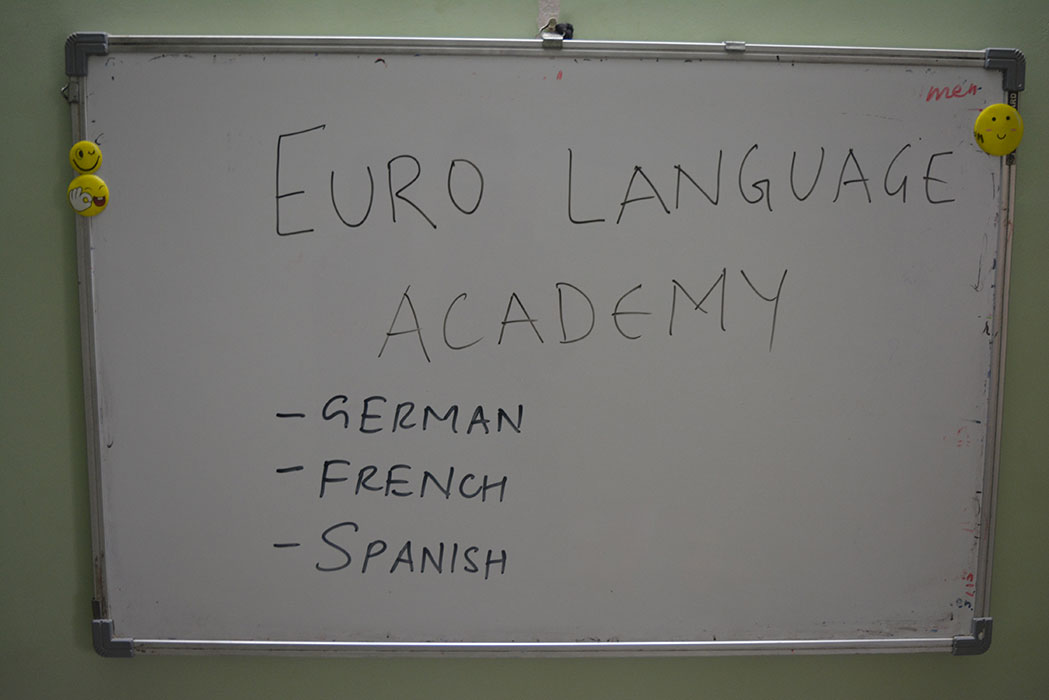 men
EURO LANGUAGE
ACADEMY
- GERMAN
- FRENCH
- SPANISH